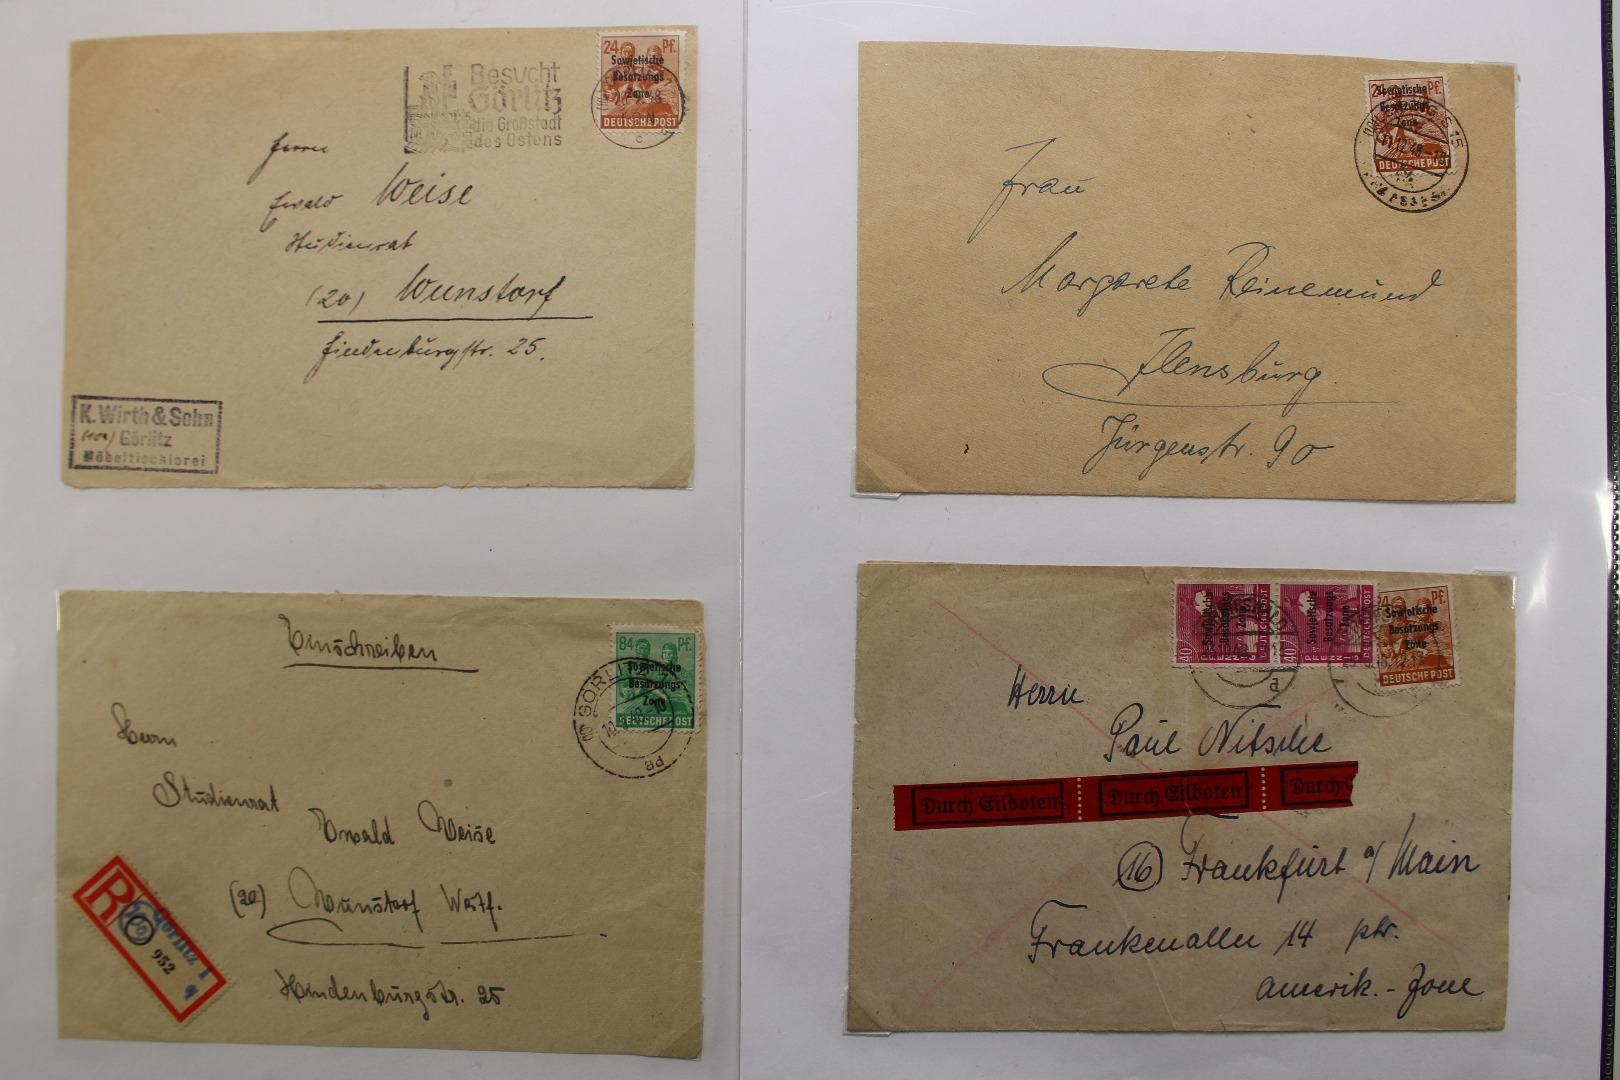 Besucht
Görlitz
die Großstadt
des Ostens
24 Pf.
Sowjetische
Besatzungs
Zone
DEUTSCHE POST
c
Herrn
Ewald Weise
Studienrat
(20) Wunstorf
Hindenburgstr. 25.
K. Wirth & Sohn
(10a) Görlitz
Möbeltischlerei
24 Pf.
Sowjetische
Besatzungs
Zone
DEUTSCHE POST
Frau
Margarete Reinemund
Flensburg.
Jürgenstr. 90
Einschreiben
84 Pf.
Sowjetische
Besatzungs
Zone
DEUTSCHE POST
GÖRLITZ
ad
Herrn
Studienrat
Ewald Weise
(20) Wunstorf Westf.
Hindenburgstr. 25
R
Görlitz 1
952
a
40
PFENNIG
DEUTSCHE POST
Sowjetische
Besatzungs
Zone
40
PFENNIG
DEUTSCHE POST
Sowjetische
Besatzungs
Zone
24 Pf.
Sowjetische
Besatzungs
Zone
DEUTSCHE POST
Herrn
Paul Nitsche
Durch Eilboten Durch Eilboten Durch E
(16) Frankfurt a/Main
Frankenallee 14 ptr.
amerik.-Zone